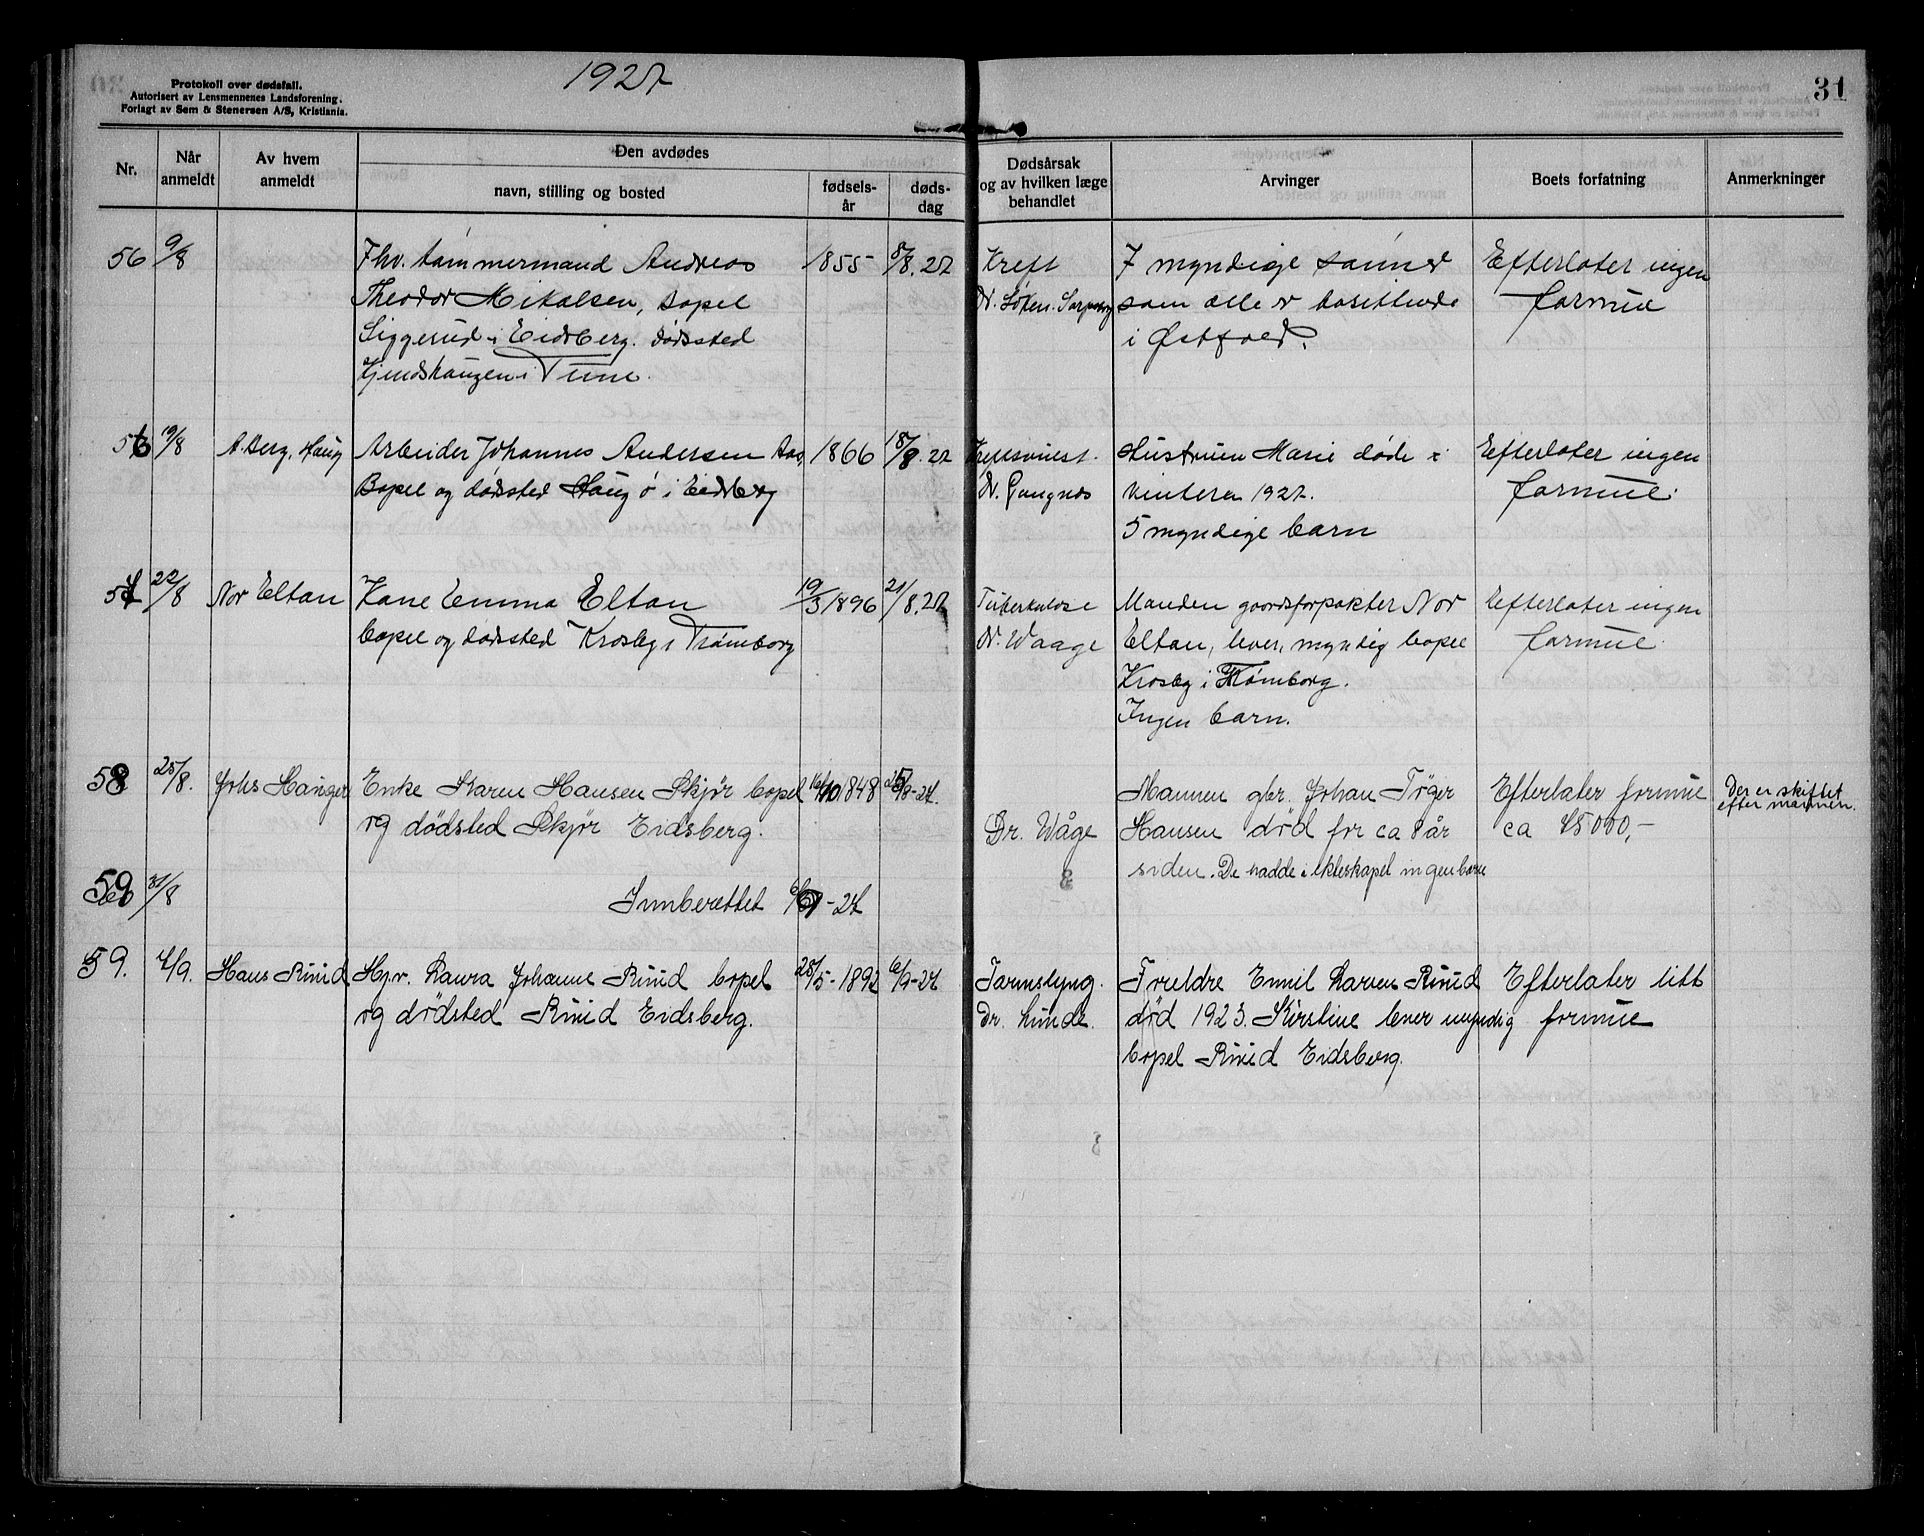 Protokoll over dødsfall.
Autorisert av Lensmennenes Landsforening.
Forlagt av Sem & Stenersen A/S, Kristiania.
1927
31
Nr.
Når anmeldt
Av hvem anmeldt
Den avdødes
navn, stilling og bosted
fødsels-år
døds-dag
Dødsårsak og av hvilken læge behandlet
Arvinger
Boets forfatning
Anmerkninger
56 9/8 Fhv. tømmermand Andreas 1855 8/8.27 Kreft 7 myndige sønner Efterlater ingen
Theodor Mikalsen, bopel Dr. Löken. Sarpsborg som alle er bosittende formue
Siggerud i Eidsberg. dødssted i Østfold.
i Tune.
56 19/8 A. Berg, Haug Arbeider Johannes Andersen Aas, 1866 18/8.27 Hustruen Marie døde i Efterlater ingen
Bopel og dødssted Haug ø i Eidsberg Dr. Gangnæs vinteren 1927. formue.
5 myndige barn
57 22/8 Nor Eltan Kone Emma Eltan 19/3 1896 21/8.27 Tuberkulose Manden gaardsforpakter Nor Efterlater ingen
bopel og dødssted Krosby i Trømborg Dr. Waage Eltan, lever, myndig bopel formue.
Krosby i Trømborg.
Ingen barn.
58 25/8. Johs Hanger Enke Karen Hansen Skjør bopel 16/10 1848 25/8-27. Mannen gbr. Johan Tøger Efterlater formue Der er skiftet
og dödsted Skjör Eidsberg. Dr. Wåge Hansen död for ca 8 år ca 45000,- efter mannen.
siden. De hadde i ekteskapet ingen barn
59 31/8 Innberettet 6/9-27
59. 7/9. Hans Ruud Hjv. Laura Johanne Ruud bopel 25/5-1892 6/9-27 Tarmslyng. Foreldre Emil Larsen Ruud Efterlater litt
og dödsted Ruud Eidsberg. Dr. Lunde. död 1923. Kirstine lever myndig formue
bopel Ruud Eidsberg.